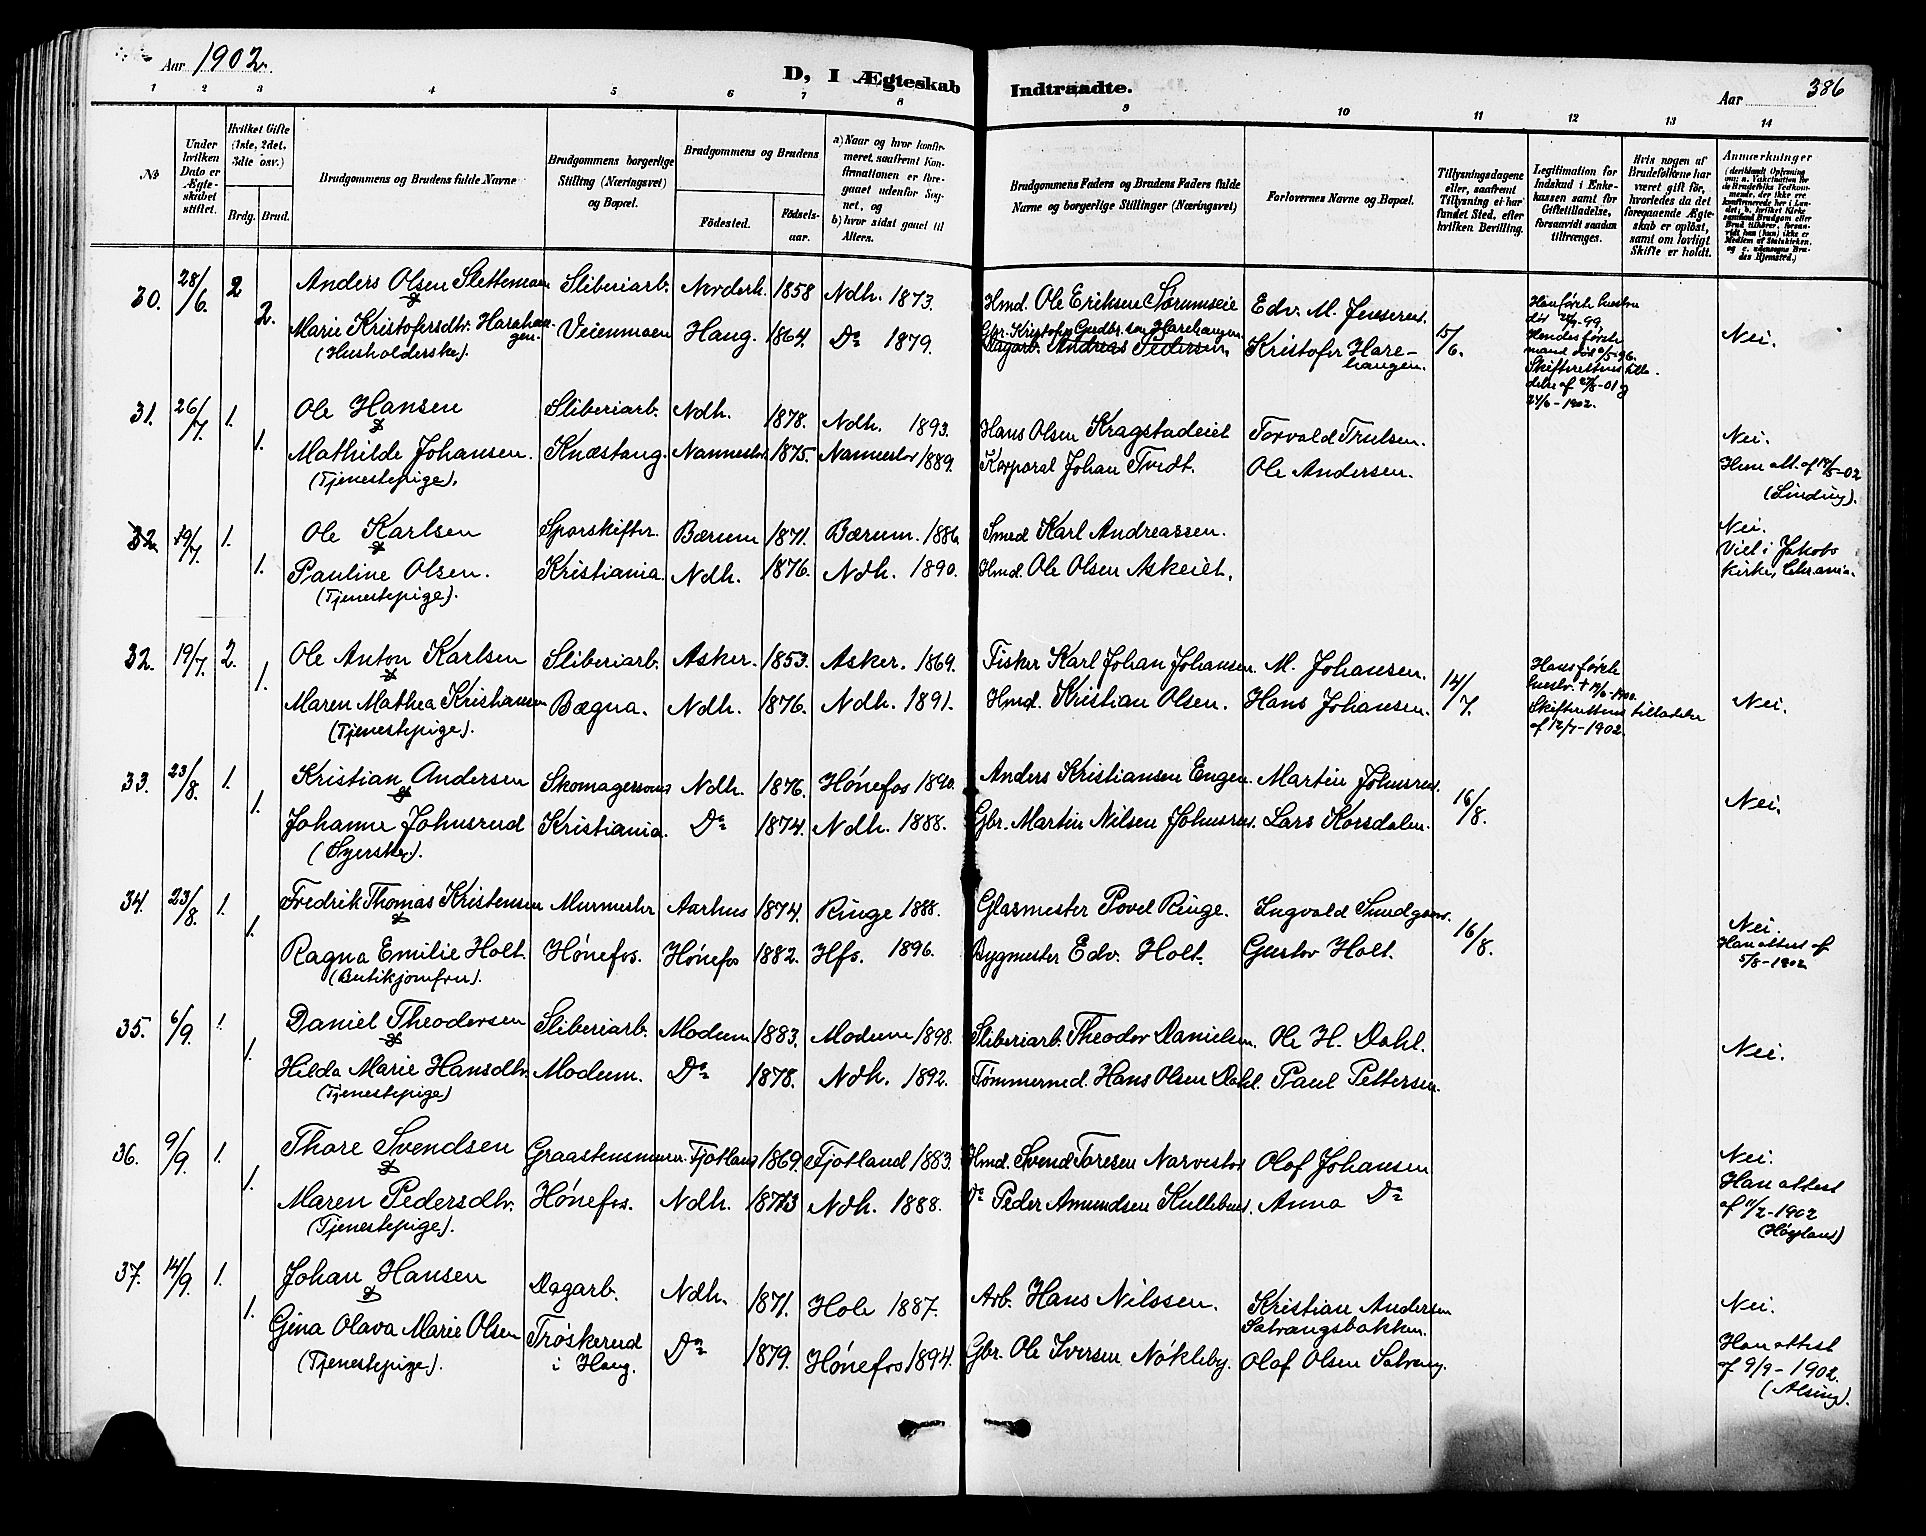 Aar 1902.
D, I Ægteskab Indtraadte.
Aar 386
1 2 3 4 5 6 7 8 9 10 11 12 13 14
No
Under hvilken Dato er Ægteskabet stiftet.
Hvilket Gifte (1ste, 2det, 3die osv.)
Brdg. Brud.
Brudgommens og Brudens fulde Navne
Brudgommens borgerlige Stilling (Næringsvei) og Bopæl.
Brudgommens og Brudens
Födested. Födselsaar.
a) Naar og hvor konfirmeret, saafremt Konfirmationen er foregaaet udenfor Sognet, og
b) hvor sidst gaaet til Alters.
Brudgommens Faders og Brudens Faders fulde Navne og borgerlige Stillinger (Næringsvei)
Forlovernes Navne og Bopæl.
Tillysningsdagene eller, saafremt Tillysning ei har fundet Sted, efter hvilken Bevilling.
Legitimation for Indskud i Enkekassen samt for Giftetilladelse, forsaavidt saadan tiltrænges.
Hvis nogen af Brudefolkene har været gift för, hvorledes da det foregaaende Ægteskab er oplöst, samt om lovligt Skifte er holdt.
Anmærkninger
30. 28/6. 2 Anders Olsen Slettemoen Sliberiarb. Norderh. 1858 Ndh. 1873. Hmd. Ole Eriksen Sørumseie Edv. M. Jensrud. 15/6.
2. Marie Kristofersdtr. Harehaugen. Veienmoen Haug. 1864. Do 1879. Gbr. Kristofer Gudbr.sen Harehaugen Kristofer Harehaugen. Nei.
(Husholderske). Dagarb. Andreas Pedersen.
Han første hustru
død -99,
Hendes første
mand død -96.
Skifterettens tilladelse af -01 og
24/6-1902.
31. 26/7. 1. Ole Hansen Sliberiarb. Ndh. 1878. Ndh. 1893. Hans Olsen Kragstadeiet Torvald Trulsen. Nei.
1. Mathilde Johansen. Knæstang. Nannestad 1875. Nannestad 1889. Korporal Johan Tvedt. Ole Andersen. Hun att. af -02
(Tjenestepige). (Linding).
32 19/7. 1. Ole Karlsen Sporskifter. Bærum 1871. Bærum. 1886. Smed Karl Andreassen. Nei.
1. Pauline Olsen. Kristiania. Ndh. 1876. Ndh. 1890. Hmd. Ole Olsen Askeiet. Viet i Jakobs
(Tjenestepige). Kirke, Chr.ania.
32. 19/7. 2. Ole Anton Karlsen Sliberiarb. Asker. 1853. Asker. 1869. Fisker Karl Johan Johansen M. Johansen. 14/7.
1. Maren Mathea Kristiansen Bægna. Ndh. 1876. Ndh. 1891. Hmd. Kristian Olsen. Hans Johansen. Nei.
(Tjenestepige).
Hans første
hustru † -1900.
Skifterettens tilladelse
af 12/7-1902.
33. 23/8. 1. Kristian Andersen Skomagersvend Ndh. 1876. Hönefos 1890. Anders Kristiansen Engen. Martin Johnsrud. 16/8.
1. Johanne Johnsrud Kristiania. Do 1874. Ndh. 1888. Gbr. Martin Nilsen Johnsrud. Lars Korsdalen. Nei.
(Syerske).
34. 23/8. 1. Fredrik Thomas Kristensen Murmester Aarhus 1874. Ringe 1888. Glasmester Povel Ringe. Ingvald Smedgaard. 16/8. Nei.
1. Ragna Emilie Holt. Hönefos. Hönefos 1882. Hfs. 1896. Bygmester Edv. Holt. Gustav Holt. Han attest af
(Butikjomfru). 5/8-1902
35. 6/9. 1. Daniel Theodorsen Sliberiarb. Modum 1883. Modum 1898. Sliberiarb. Theodor Danielsen. Ole H. Dahl.
1. Hilda Marie Hansdtr. Modum. Do 1878. Ndh. 1892. Tömmermd. Hans Olsen Dahl. Paul Pettersen. Nei.
(Tjenestepige)
36. 9/9. 1. Thore Svendsen Graastensmurer. Fjotland 1869. Fjotland 1883. Hmd. Svend Toresen Narvestad Olaf Johansen Nei.
1. Maren Pedersdtr. Hönefos. Ndh. 1873 Ndh. 1888. Do Peder Amundsen Kullebund. Anna Do Han attest
(Tjenestepige). af -1902
(Høyland)
37. 14/9. 1. Johan Hansen Dagarb. Ndh. 1871. Hole 1887. Arb. Hans Nilssen. Kristian Andersen Nei.
Satrangsbakken.
1. Gina Olava Marie Olsen Trøskerud i Haug. Do 1879. Hönefos 1894. Gbr. Ole Iversen Nökleby. Olaf Olsen Satrang. Han attest
(Tjenestepige). af 9/9-1902.
(Alsing).